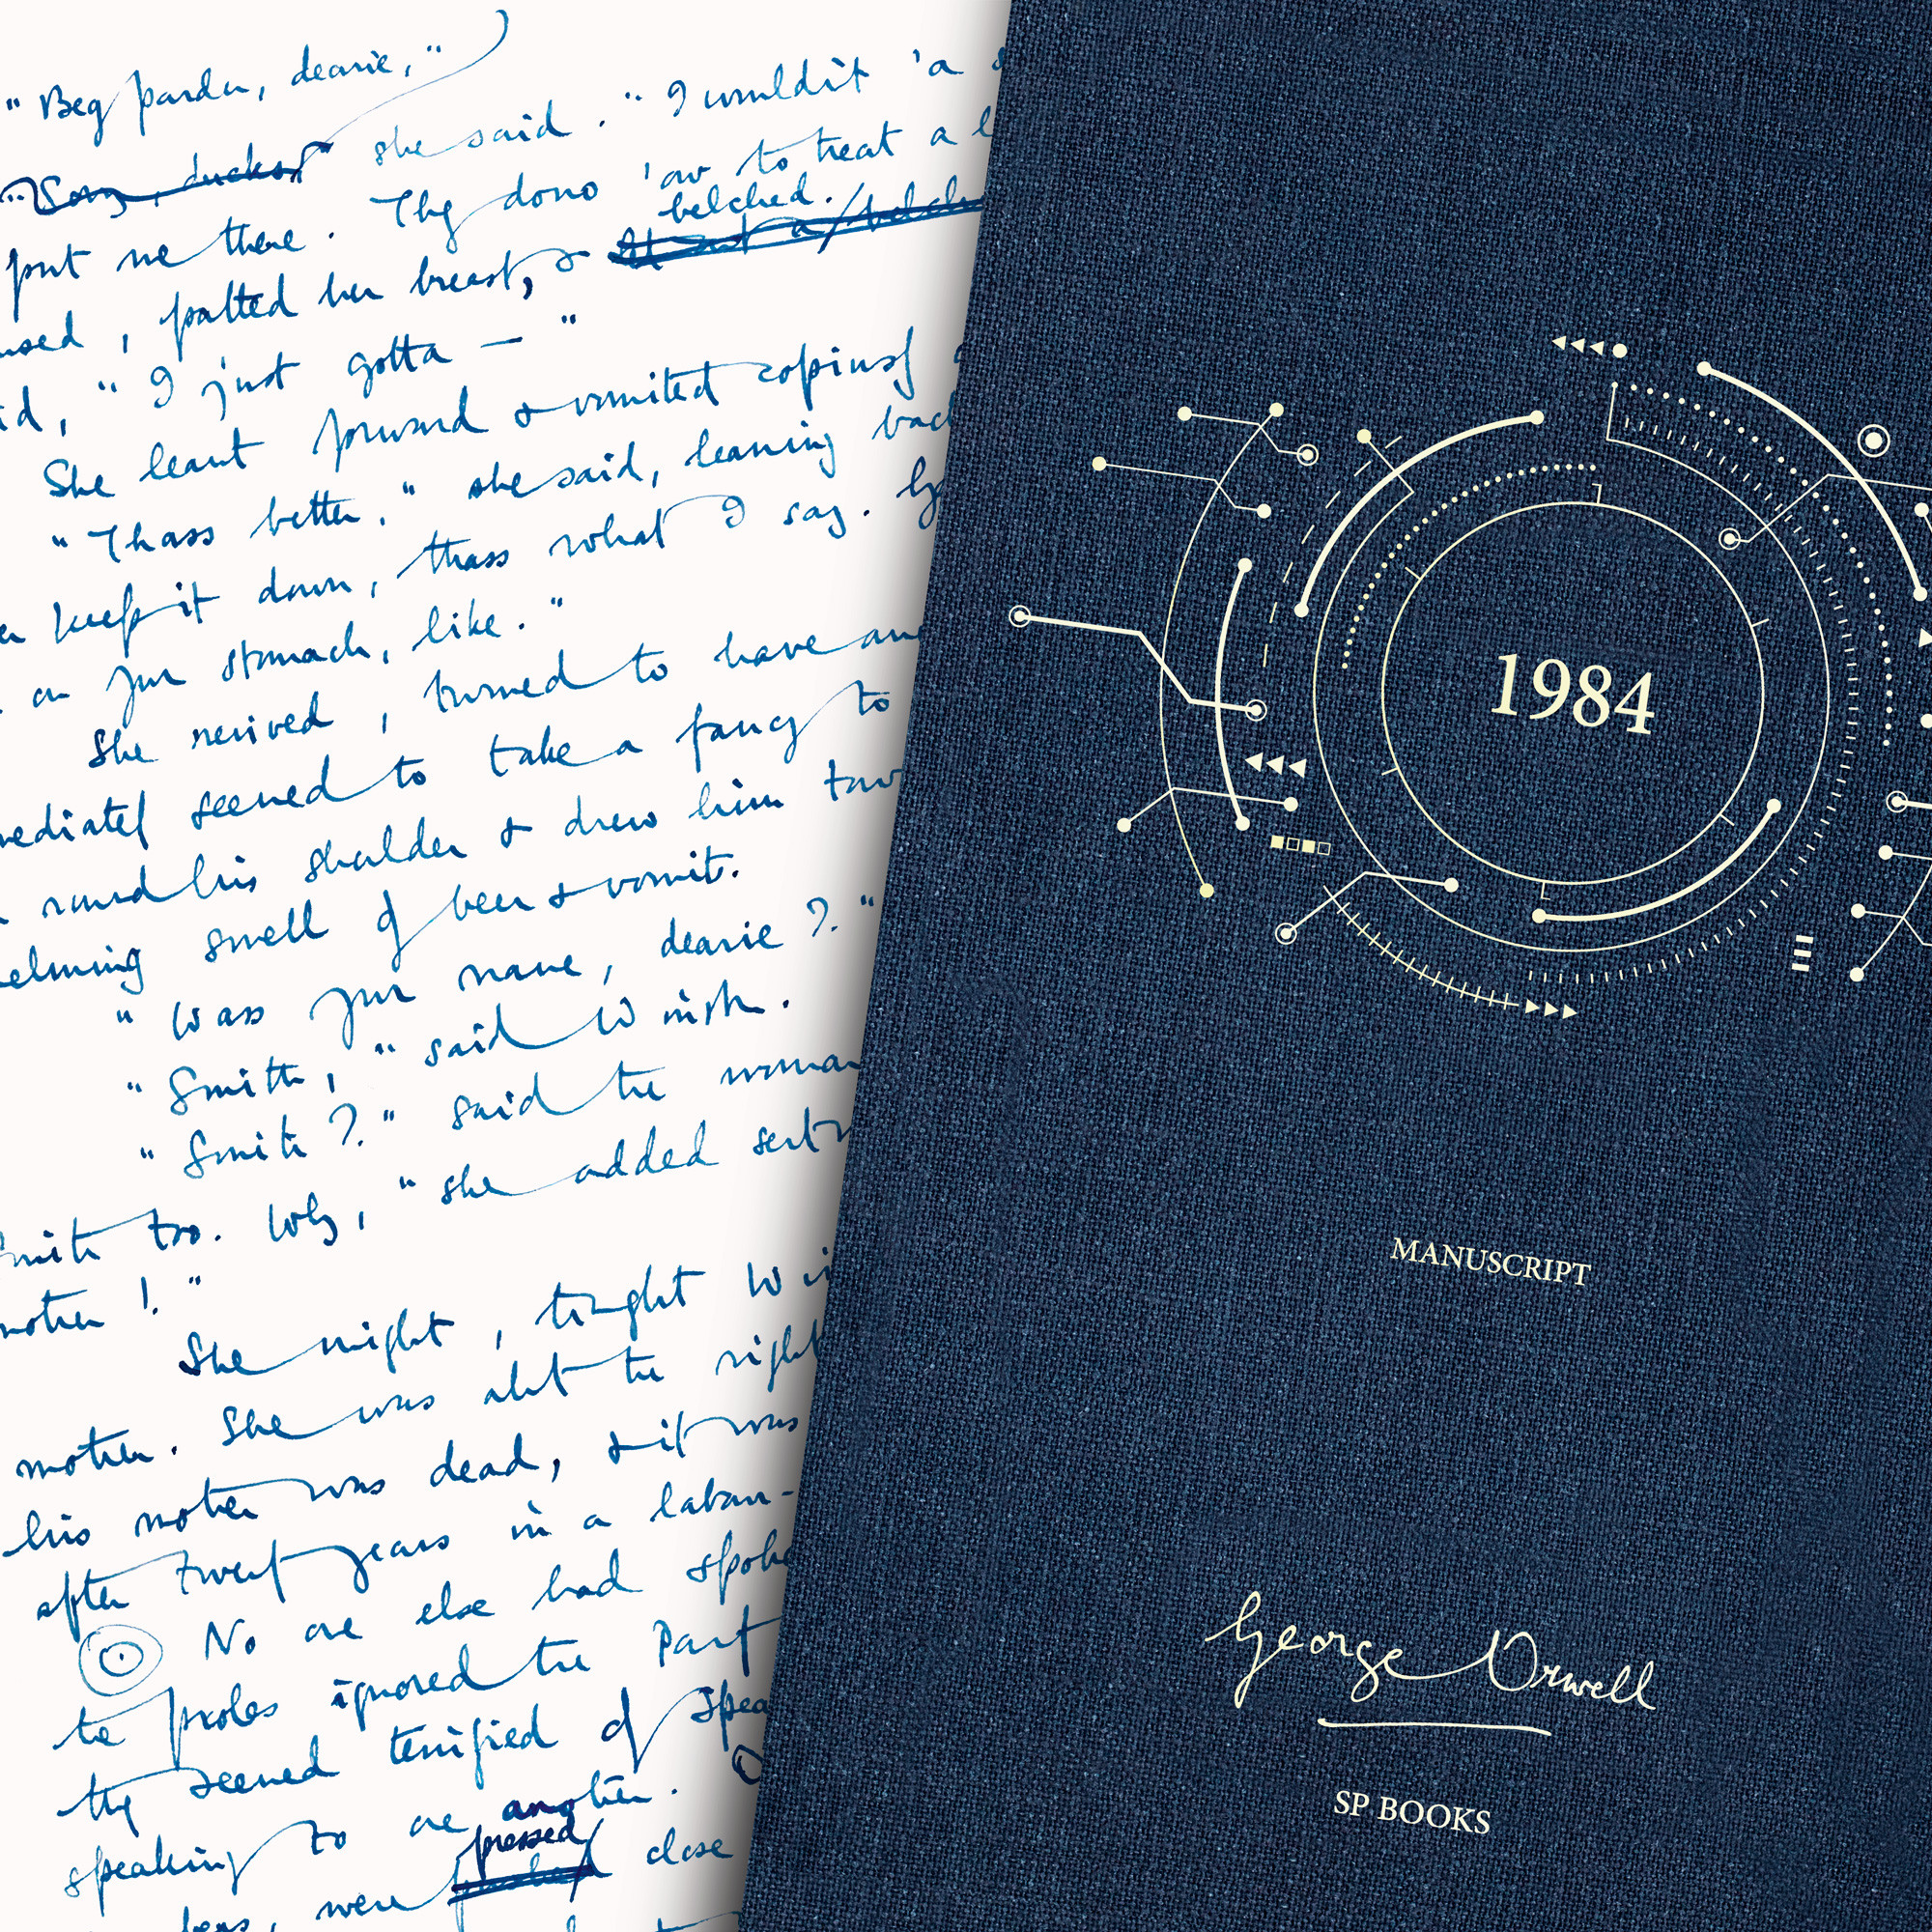 "Beg pardon, dearie,"
"Sorry, ducks," she said. "I wouldn't 'a
put me there. They dono 'ow to treat a
belched.
, patted her breast, &
"I just gotta — "
She leant forward & vomited copiously
"Thass better," she said, leaning back
keep it down, thass what I say.
on your stomach, like."
She revived, turned to have
seemed to take a fancy to
round his shoulder & drew him
smell of beer & vomit.
"Wass your name, dearie?"
"Smith," said Winston.
"Smith?" said the woman
too. Why," she added
mother!"
She might, thought
mother. She was about the right
his mother was dead, & it was
after twenty years in a labour-
No one else had
the proles ignored the Party
they seemed terrified of
speaking to one another.
pressed
, were pushed close
1984
MANUSCRIPT
George Orwell
SP BOOKS